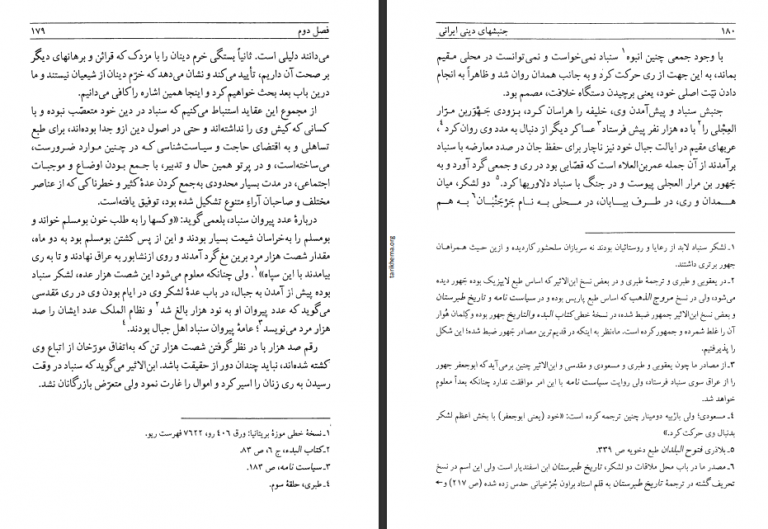 ۱۸۰
جنبشهای دینی ایرانی
با وجود جمعی چنین انبوه۱ سنباد نمی‌خواست و نمی‌توانست در محلی مقیم
بماند، به این جهت از ری حرکت کرد و به جانب همدان روان شد و ظاهراً به انجام
دادن نیّت اصلی خود، یعنی برچیدن دستگاه خلافت، مصمم بود.
جنبش سنباد و پیش‌آمدن وی، خلیفه را هراسان کرد، بزودی جَهْوَربن مَرّار
العِجْلی را۲ با ده هزار نفر پیش فرستاد۳ عساکر دیگر از دنبال به مدد وی روان کرد۴
عربهای مقیم در ایالت جبال خود نیز ناچار برای حفظ جان در صدد معارضه با سنباد
برآمدند از آن جمله عمربن‌العلاء است که قصّابی بود در ری و جمعی گرد آورد و به
جَهور بن مرار العجلی پیوست و در جنگ با سنباد دلاوریها کرد.۵ دو لشکر، میان
همدان و ری، در طرف بیابان، در محلی به نام جَرْجَنْبَان۶ به هم
۱ـ لشکر سنباد لابد از رعایا و روستائیان بودند نه سربازان سلحشور کاردیده و ازین حیث همراهان
جهور برتری داشتند.
۲ـ در یعقوبی و طبری و ترجمهٔ طبری و در بعض نسخ ابن‌الاثیر که اساس طبع لایپزیک بوده جهور دیده
می‌شود، ولی در نسخ مروج الذهب که اساس طبع پاریس بوده و در سیاست نامه و تاریخ طبرستان
و بعض نسخ ابن‌الاثیر جمهور ضبط شده، در نسخهٔ خطی کتاب البدء والتاریخ جهور بوده و کلمان هُوار
آن را غلط شمرده و جمهور کرده است. ماـ نظر به اینکه در قدیم‌ترین مصادر جهور ضبط شده؛ این شکل
را پذیرفتیم.
۳ـ از مصادر ما چون یعقوبی و طبری و مسعودی و مقدسی و ابن‌الاثیر چنین برمی‌آید که ابوجعفر جهور
را از عراق سوی سنباد فرستاد، ولی روایت سیاست نامه با این امر موافقت ندارد چنانکه بعداً معلوم
خواهد شد.
۴ـ مسعودی؛ ولی باژبیه دومینار چنین ترجمه کرده است: «خود (یعنی ابوجعفر) با بخش اعظم لشکر
بدنبال وی حرکت کرد.»
۵ـ بلاذری فتوح البلدان طبع دخویه ص ۳۳۹.
۶ـ مصدر ما در باب محل ملاقات دو لشکر، تاریخ طبرستان ابن اسفندیار است ولی این اسم در نسخ
تحریف گشته در ترجمهٔ تاریخ طبرستان به قلم استاد براون جُرْخیانی حدس زده شده (ص ۲۱۷) و←
tarikhema.org
فصل دوم
۱۷۹
می‌دانند دلیلی است. ثانیاً بستگی خرم دینان را با مزدک که قرائن و برهانهای دیگر
بر صحت آن داریم، تأیید می‌کند و نشان می‌دهد که خرّم دینان از شیعیان نیستند و ما
درین باب بعد بحث خواهیم کرد و اینجا همین اشاره را کافی می‌دانیم.
از مجموع این عقاید استنباط می‌کنیم که سنباد در دین خود متعصّب نبوده و با
کسانی که کیش وی را نداشته‌اند و حتی در اصول دین ازو جدا بوده‌اند، برای طبع
تساهلی و به اقتضای حاجت و سیاست‌شناسی که در چنین موارد ضرورست،
می‌ساخته‌است، و در پرتو همین حال و تدبیر، با جمع بودن اوضاع و موجبات
اجتماعی، در مدت بسیار محدودی به‌جمع کردن عدهٔ کثیر و خطرناکی که از عناصر
مختلف و صاحبان آراءِ متنوع تشکیل شده بود، توفیق یافته‌است.
دربارهٔ عدد پیروان سنباد، بلعمی‌گوید: «وکسها را به طلب خون بومسلم خواند و
بومسلم را به‌خراسان شیعت بسیار بودند و این از پس کشتن بومسلم بد به دو ماه،
مقدار شصت هزار مرد برین مغ گرد آمدند و روی ازنشابور به عراق نهادند و تا به ری
بیامدند با این سپاه»۱. ولی چنانکه معلوم می‌شود این شصت هزار عده، لشکر سنباد
بوده پیش از آمدن به جبال، در باب عدهٔ لشکر وی در ایام بودن وی در ری مَقْدسی
می‌گوید که عدد پیروان او به نود هزار بالغ شد۲ و نظام الملک عدد ایشان را صد
هزار مرد می‌نویسد۳؛ عامهٔ پیروان سنباد اهل جبال بودند.۴
رقم صد هزار با در نظر گرفتن شصت هزار تن که به‌اتفاق مورّخان از اتباع وی
کشته شده‌اند، نباید چندان دور از حقیقت باشد. ابن‌الاثیر می‌گوید که سنباد در وقت
رسیدن به ری زنان را اسیر کرد و اموال را غارت نمود ولی متعرّض بازرگانان نشد.
۱ـ نسخهٔ خطی موزهٔ بریتانیا: ورق ۴۰۶ رو، ۷۶۲۲ فهرست ریو.
۲ـ کتاب البدء، ج ۶، ص ۸۳.
۳ـ سیاست نامه، ص ۱۸۳.
۴ـ طبری، حلقهٔ سوم.